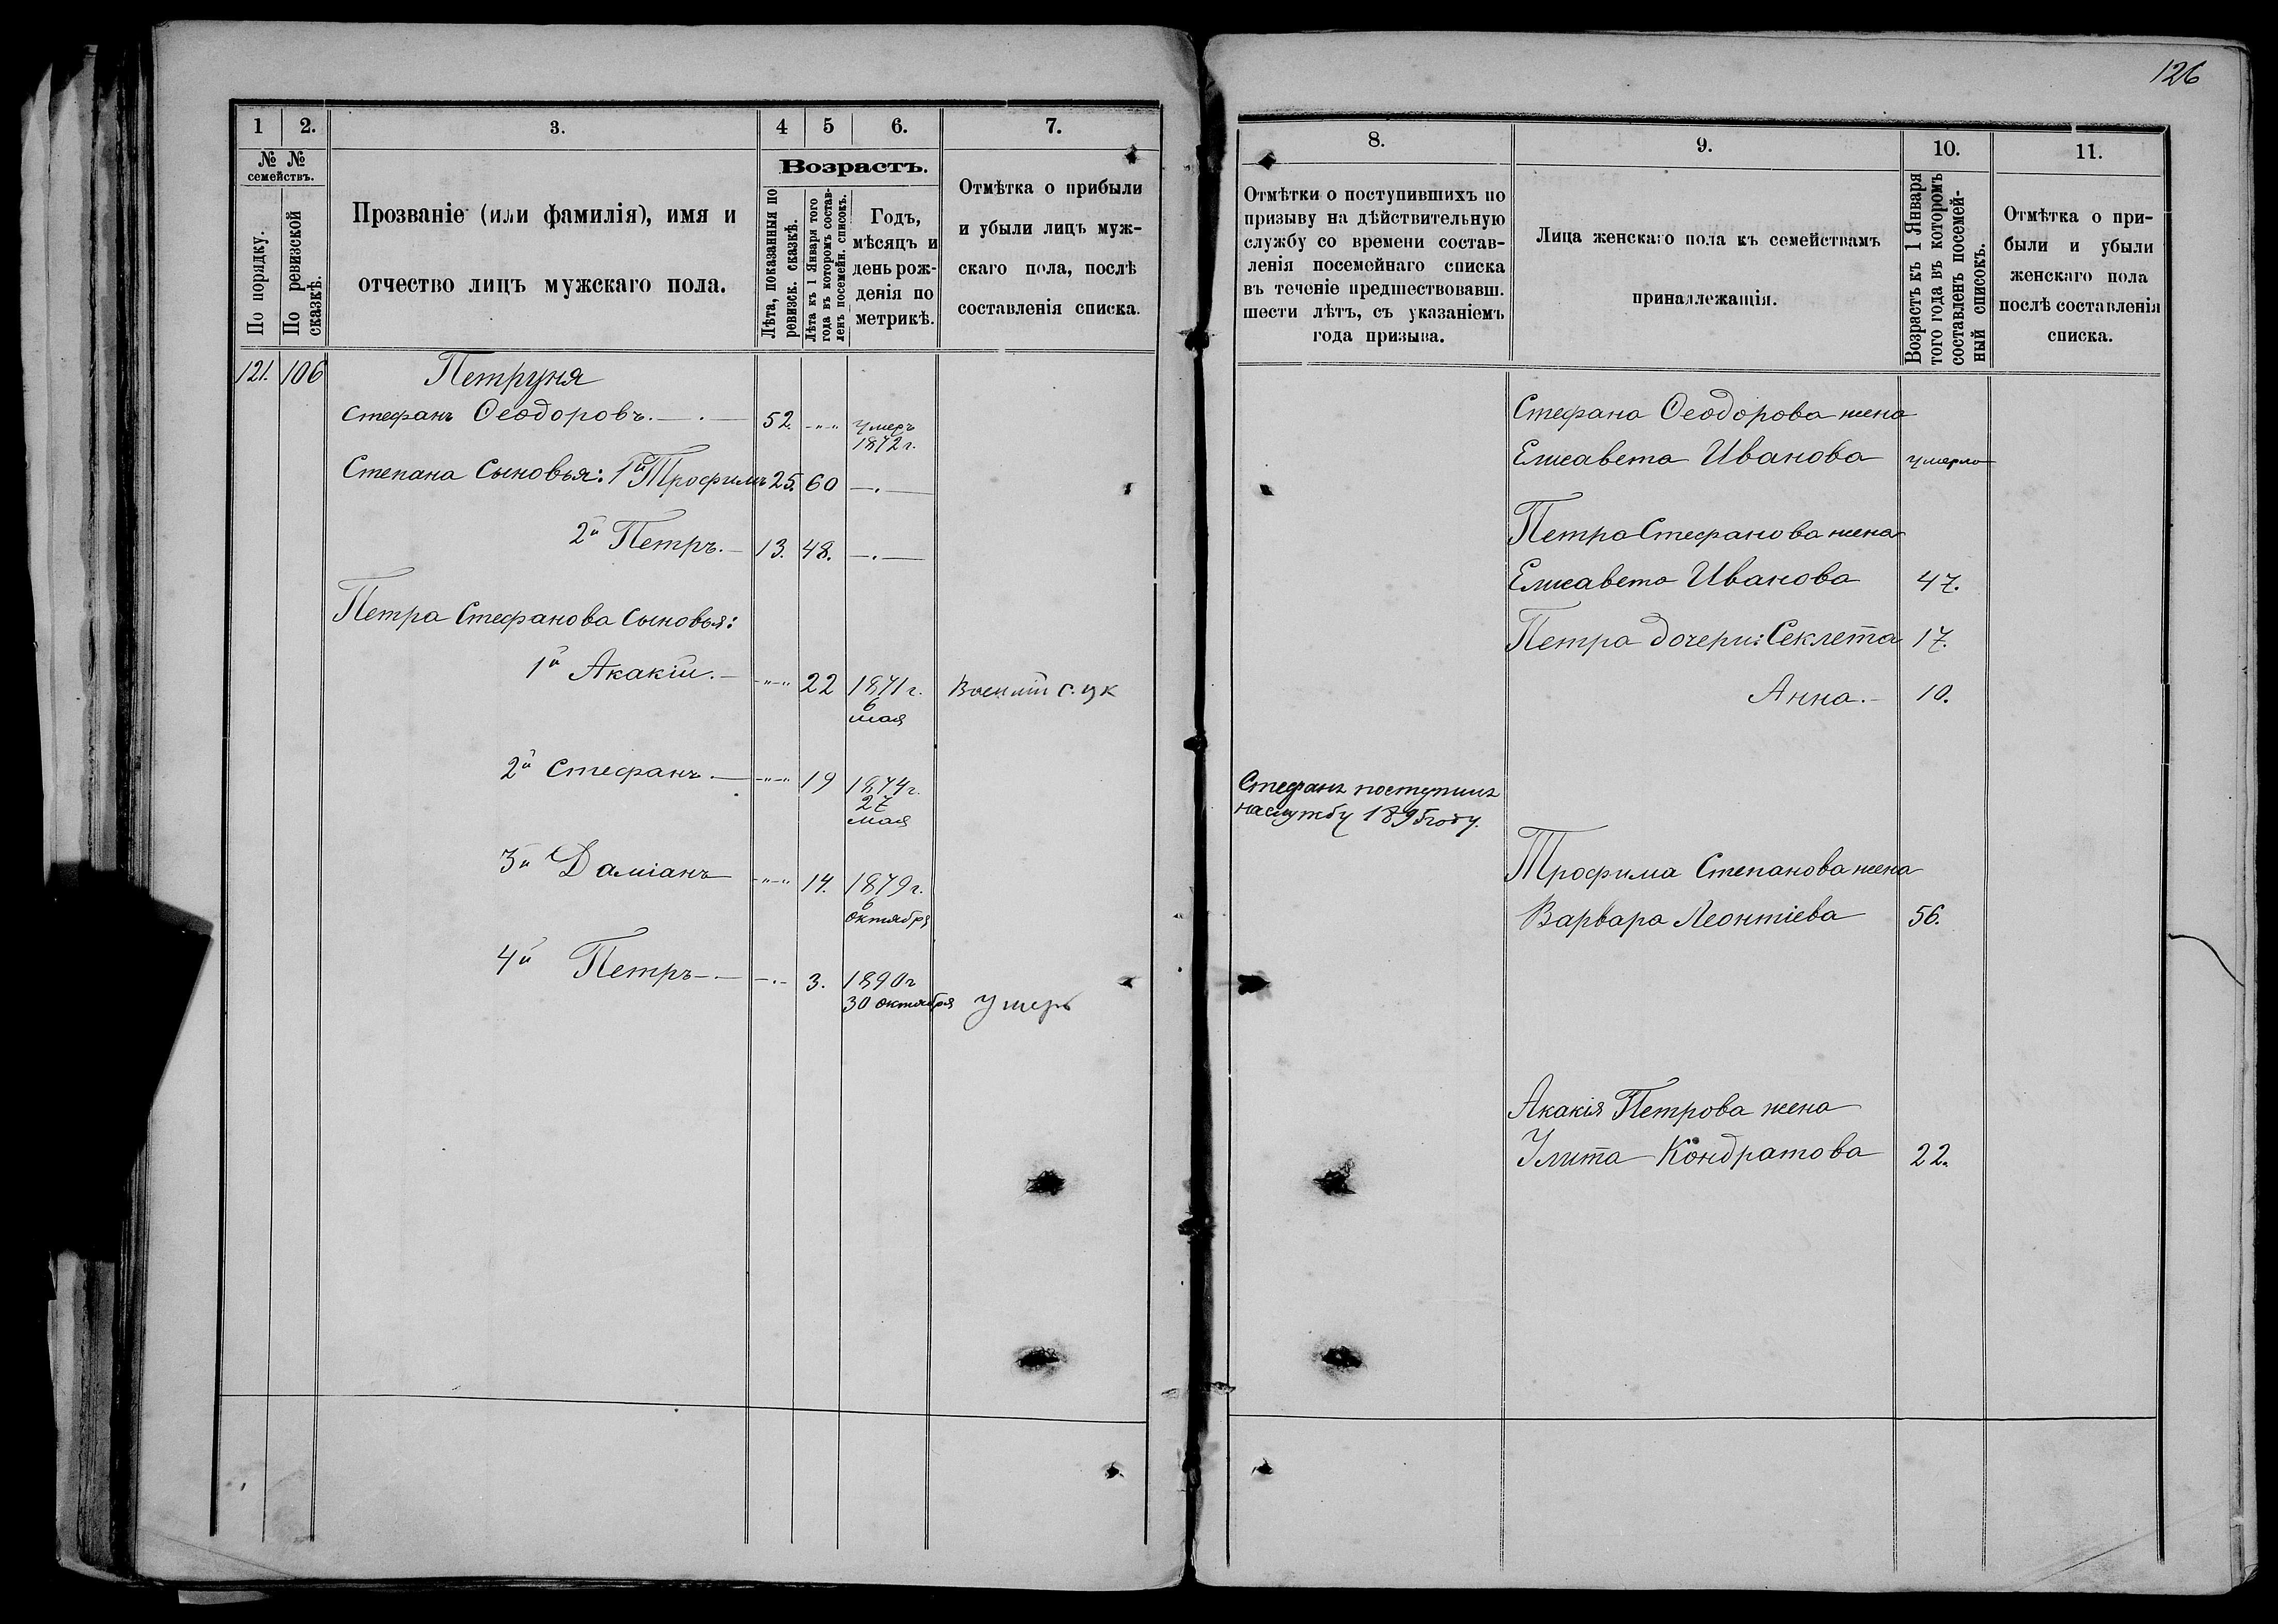 126
1 2. 3. 4 5 6. 7.
№ №
семействъ.
По порядку.
По ревизской
сказкѣ.
Прозваніе (или фамилія), имя и
отчество лицъ мужскаго пола.
Возрастъ.
Лѣта, показанныя по
ревизск. сказкѣ.
Лѣта къ 1 Января того
года въ которомъ состав-
ленъ посемейн. списокъ.
Годъ,
мѣсяцъ и
день рож-
денія по
метрикѣ.
Отмѣтка о прибыли
и убыли лицъ муж-
скаго пола, послѣ
составленія списка.
121. 106 Петруня
Стефанъ Ѳеодоровъ. 52. умеръ
1872 г.
Степана Сыновья: 1й Трофимъ 25. 60
2й Петръ. 13. 48.
Петра Стефанова Сыновья:
1й Акакій. 22 1871 г.
6
мая
2й Стефанъ 19 1874 г.
27
мая
3й Даміанъ 14. 1879 г.
6
октября
4й Петръ 3. 1890 г
30 октября умеръ
8. 9. 10. 11.
Отмѣтки о поступившихъ по
призыву на дѣйствительную
службу со времени состав-
ленія посемейнаго списка
въ теченіе предшествовавш.
шести лѣтъ, съ указаніемъ
года призыва.
Лица женскаго пола къ семействамъ
принадлежащія.
Возрастъ къ 1 Января
того года въ которомъ
составленъ посемей-
ный списокъ.
Отмѣтка о при-
были и убыли
женскаго пола
послѣ составленія
списка.
Стефана Ѳеодорова жена
Елисавета Иванова умерла
Петра Стефанова жена
Елисавета Иванова 47.
Петра дочери: Секлета 17.
Анна. 10.
Стефанъ поступилъ
на службу 1895 году.
Трофима Степанова жена
Варвара Леонтіева 56.
Акакія Петрова жена
Улита Кондратова 22.